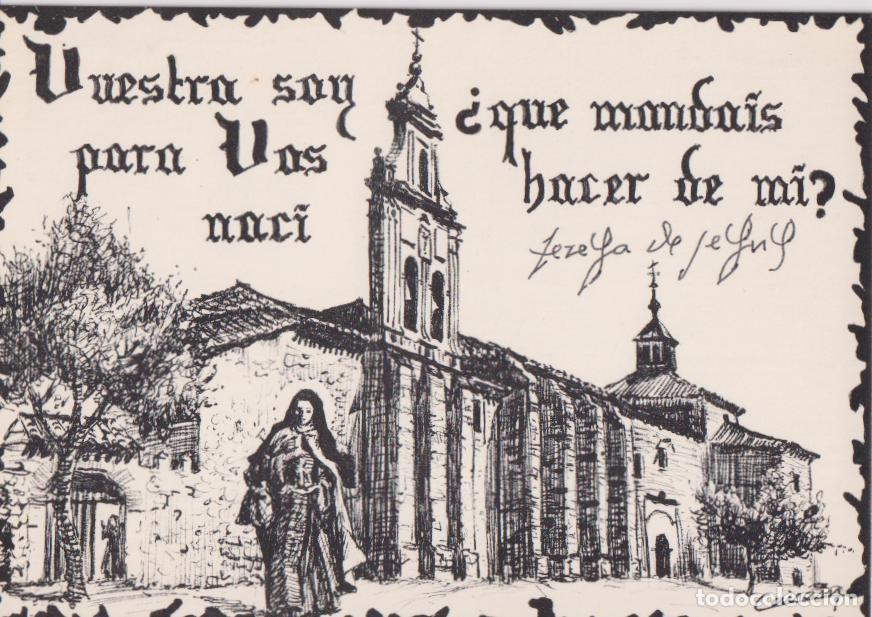 Vuestra soy
para Vos
naci
¿que mandais
hacer de mi?
teresa de jesus
todocoleccion